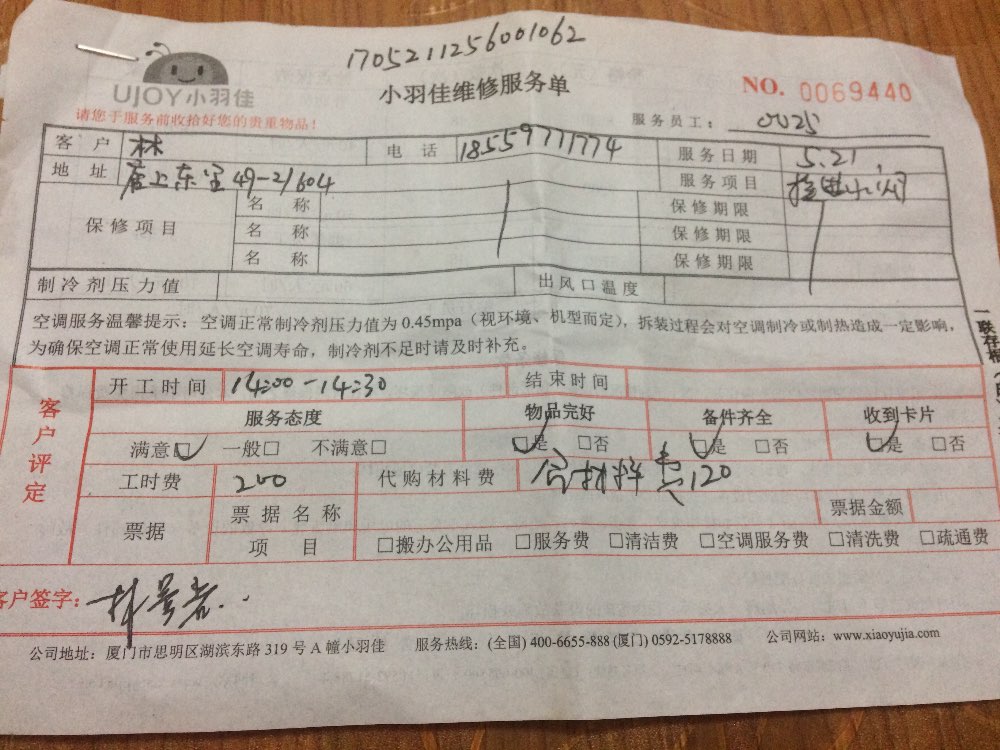 1705211256001062
UJOY小羽佳
小羽佳维修服务单
NO. 0069440
请您于服务前收拾好您的贵重物品!
服务员工: 0025
客户 林 电话 18559771774 服务日期 5.21.
地址 东 49-21604 服务项目
保修项目 名称 保修期限
名称 保修期限
名称 保修期限
制冷剂压力值 出风口温度
空调服务温馨提示：空调正常制冷剂压力值为0.45mpa（视环境、机型而定），拆装过程会对空调制冷或制热造成一定影响，
为确保空调正常使用延长空调寿命，制冷剂不足时请及时补充。
一联存根
客户评定
开工时间 14:00-14:30 结束时间
服务态度 物品完好 备件齐全 收到卡片
满意□ 一般□ 不满意□ □是 □否 □是 □否 □是 □否
工时费 200 代购材料费 含材料费120
票据 票据名称 票据金额
项目 □搬办公用品 □服务费 □清洁费 □空调服务费 □清洗费 □疏通费
客户签字: 林
公司地址：厦门市思明区湖滨东路319号A幢小羽佳 服务热线：(全国) 400-6655-888 (厦门) 0592-5178888 公司网站：www.xiaoyujia.com